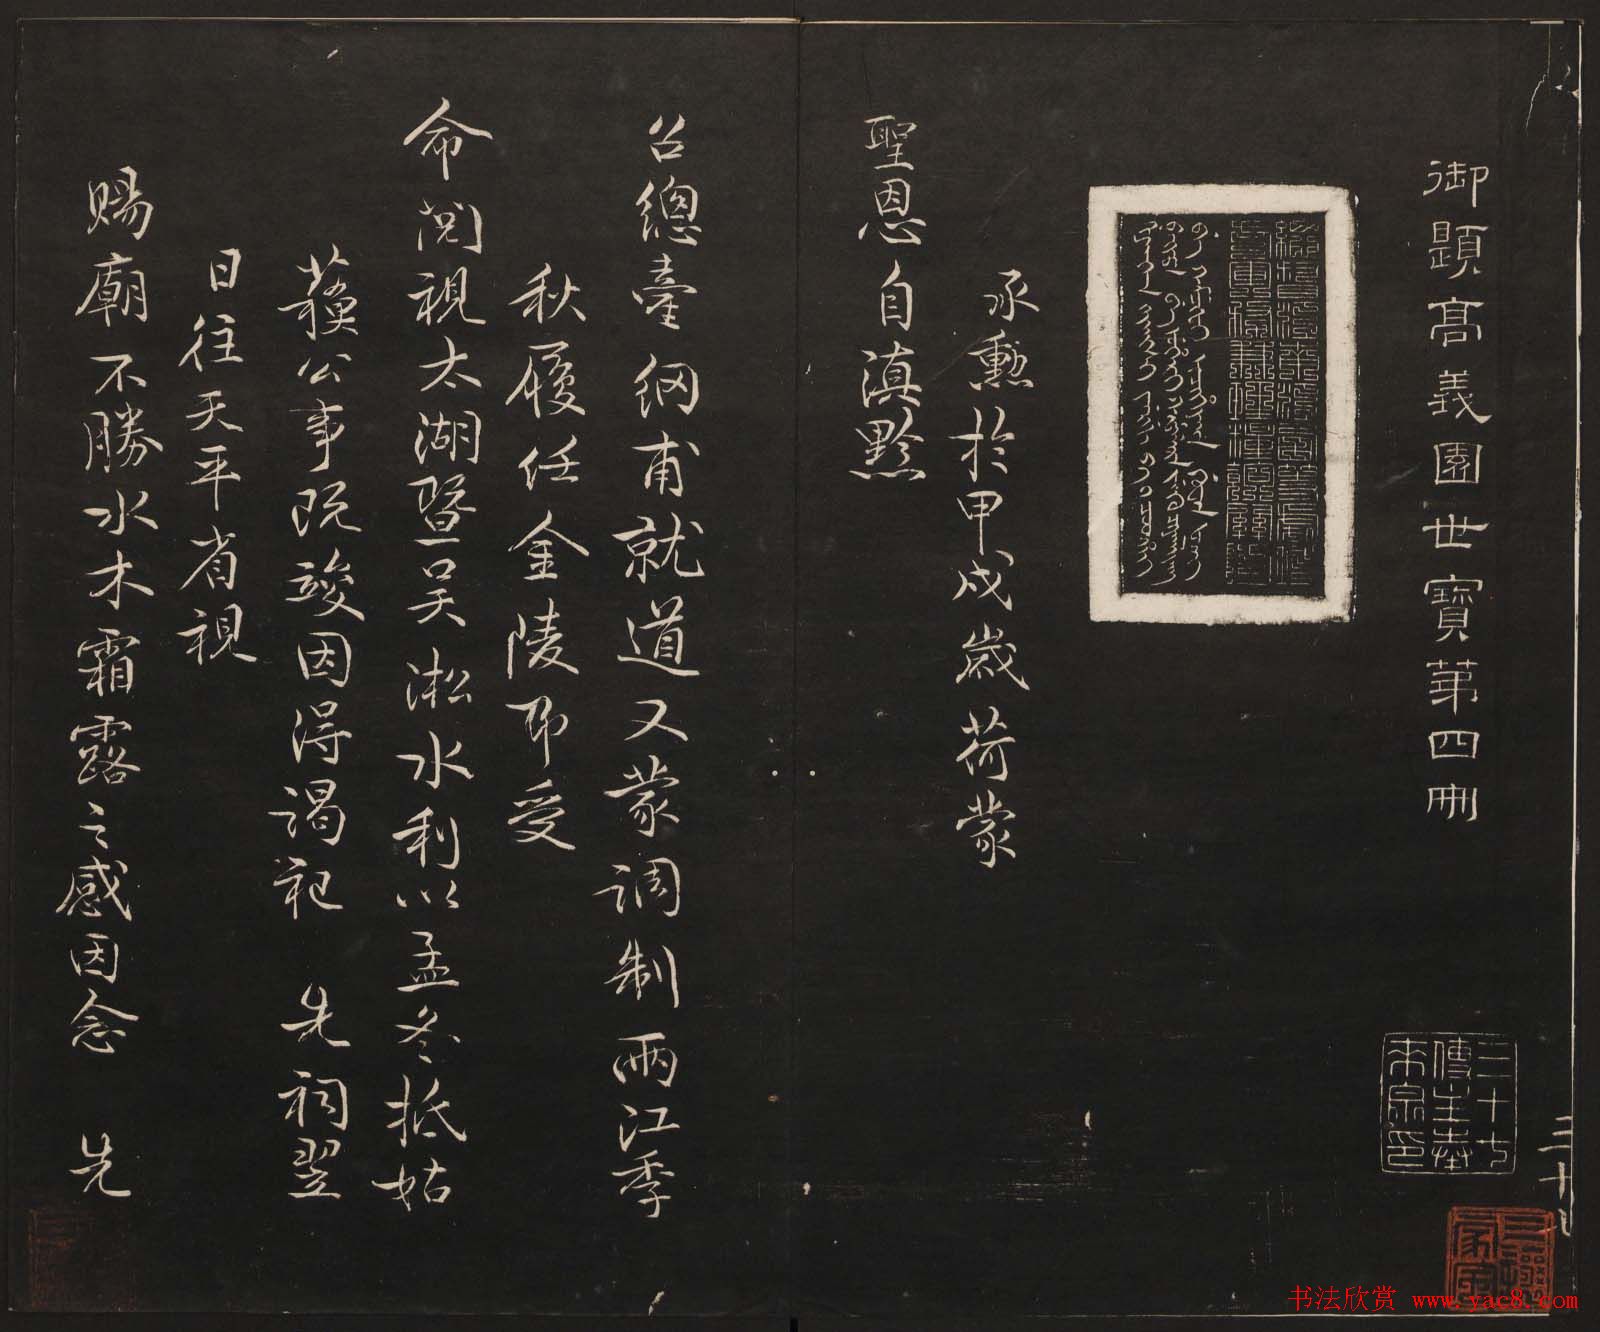 御題高義園世寶第四冊
三十七
傳主奉
來泉印
三十七
承勲於甲戌歲荷蒙
聖恩自滇黔
召總臺綱甫就道又蒙調制兩江季
秋履任金陵即受
命閲視太湖暨吴淞水利以孟冬抵姑
蘓公事既竣因得謁祀 先祠翌
日往天平省視
賜廟不勝水木霜露之感因念 先
书法欣赏 www.yac8.com